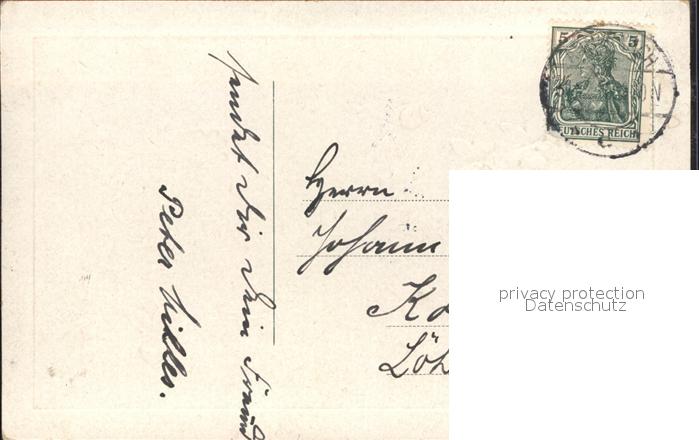 5 5
DEUTSCHES REICH
Herrn
Johann
Ko
Löh
sendet Dir Dein Freund
Peter
privacy protection
Datenschutz